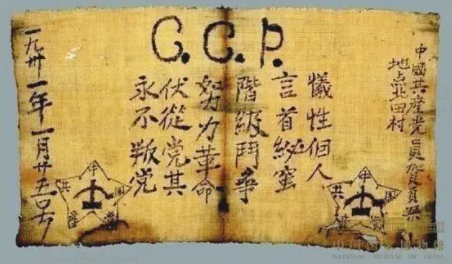 C.C.P.
中國共產党員賀頁朵
地点北田村
犧性個人
言首秘蜜
階級鬥爭
努力革命
伏從党其
永不叛党
一九卅一年一月廿五号
中
共
國
產
中
共
國
產
NATIONAL MUSEUM OF CHINA